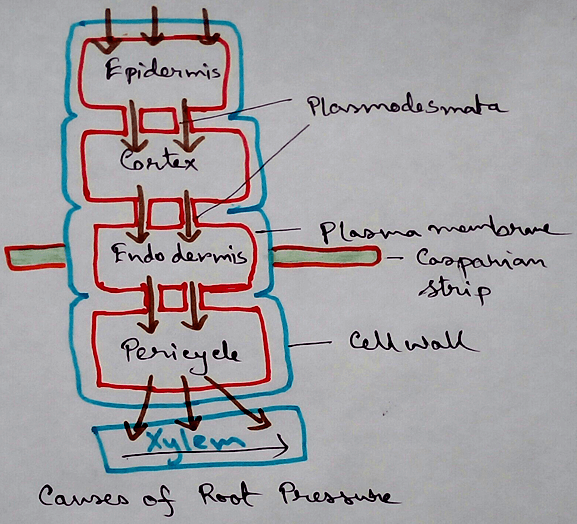 Epidermis
Plasmodesmata
Cortex
Plasma membrane
Endodermis
Casparian
strip
Pericycle
Cell wall
Xylem
Causes of Root Pressure